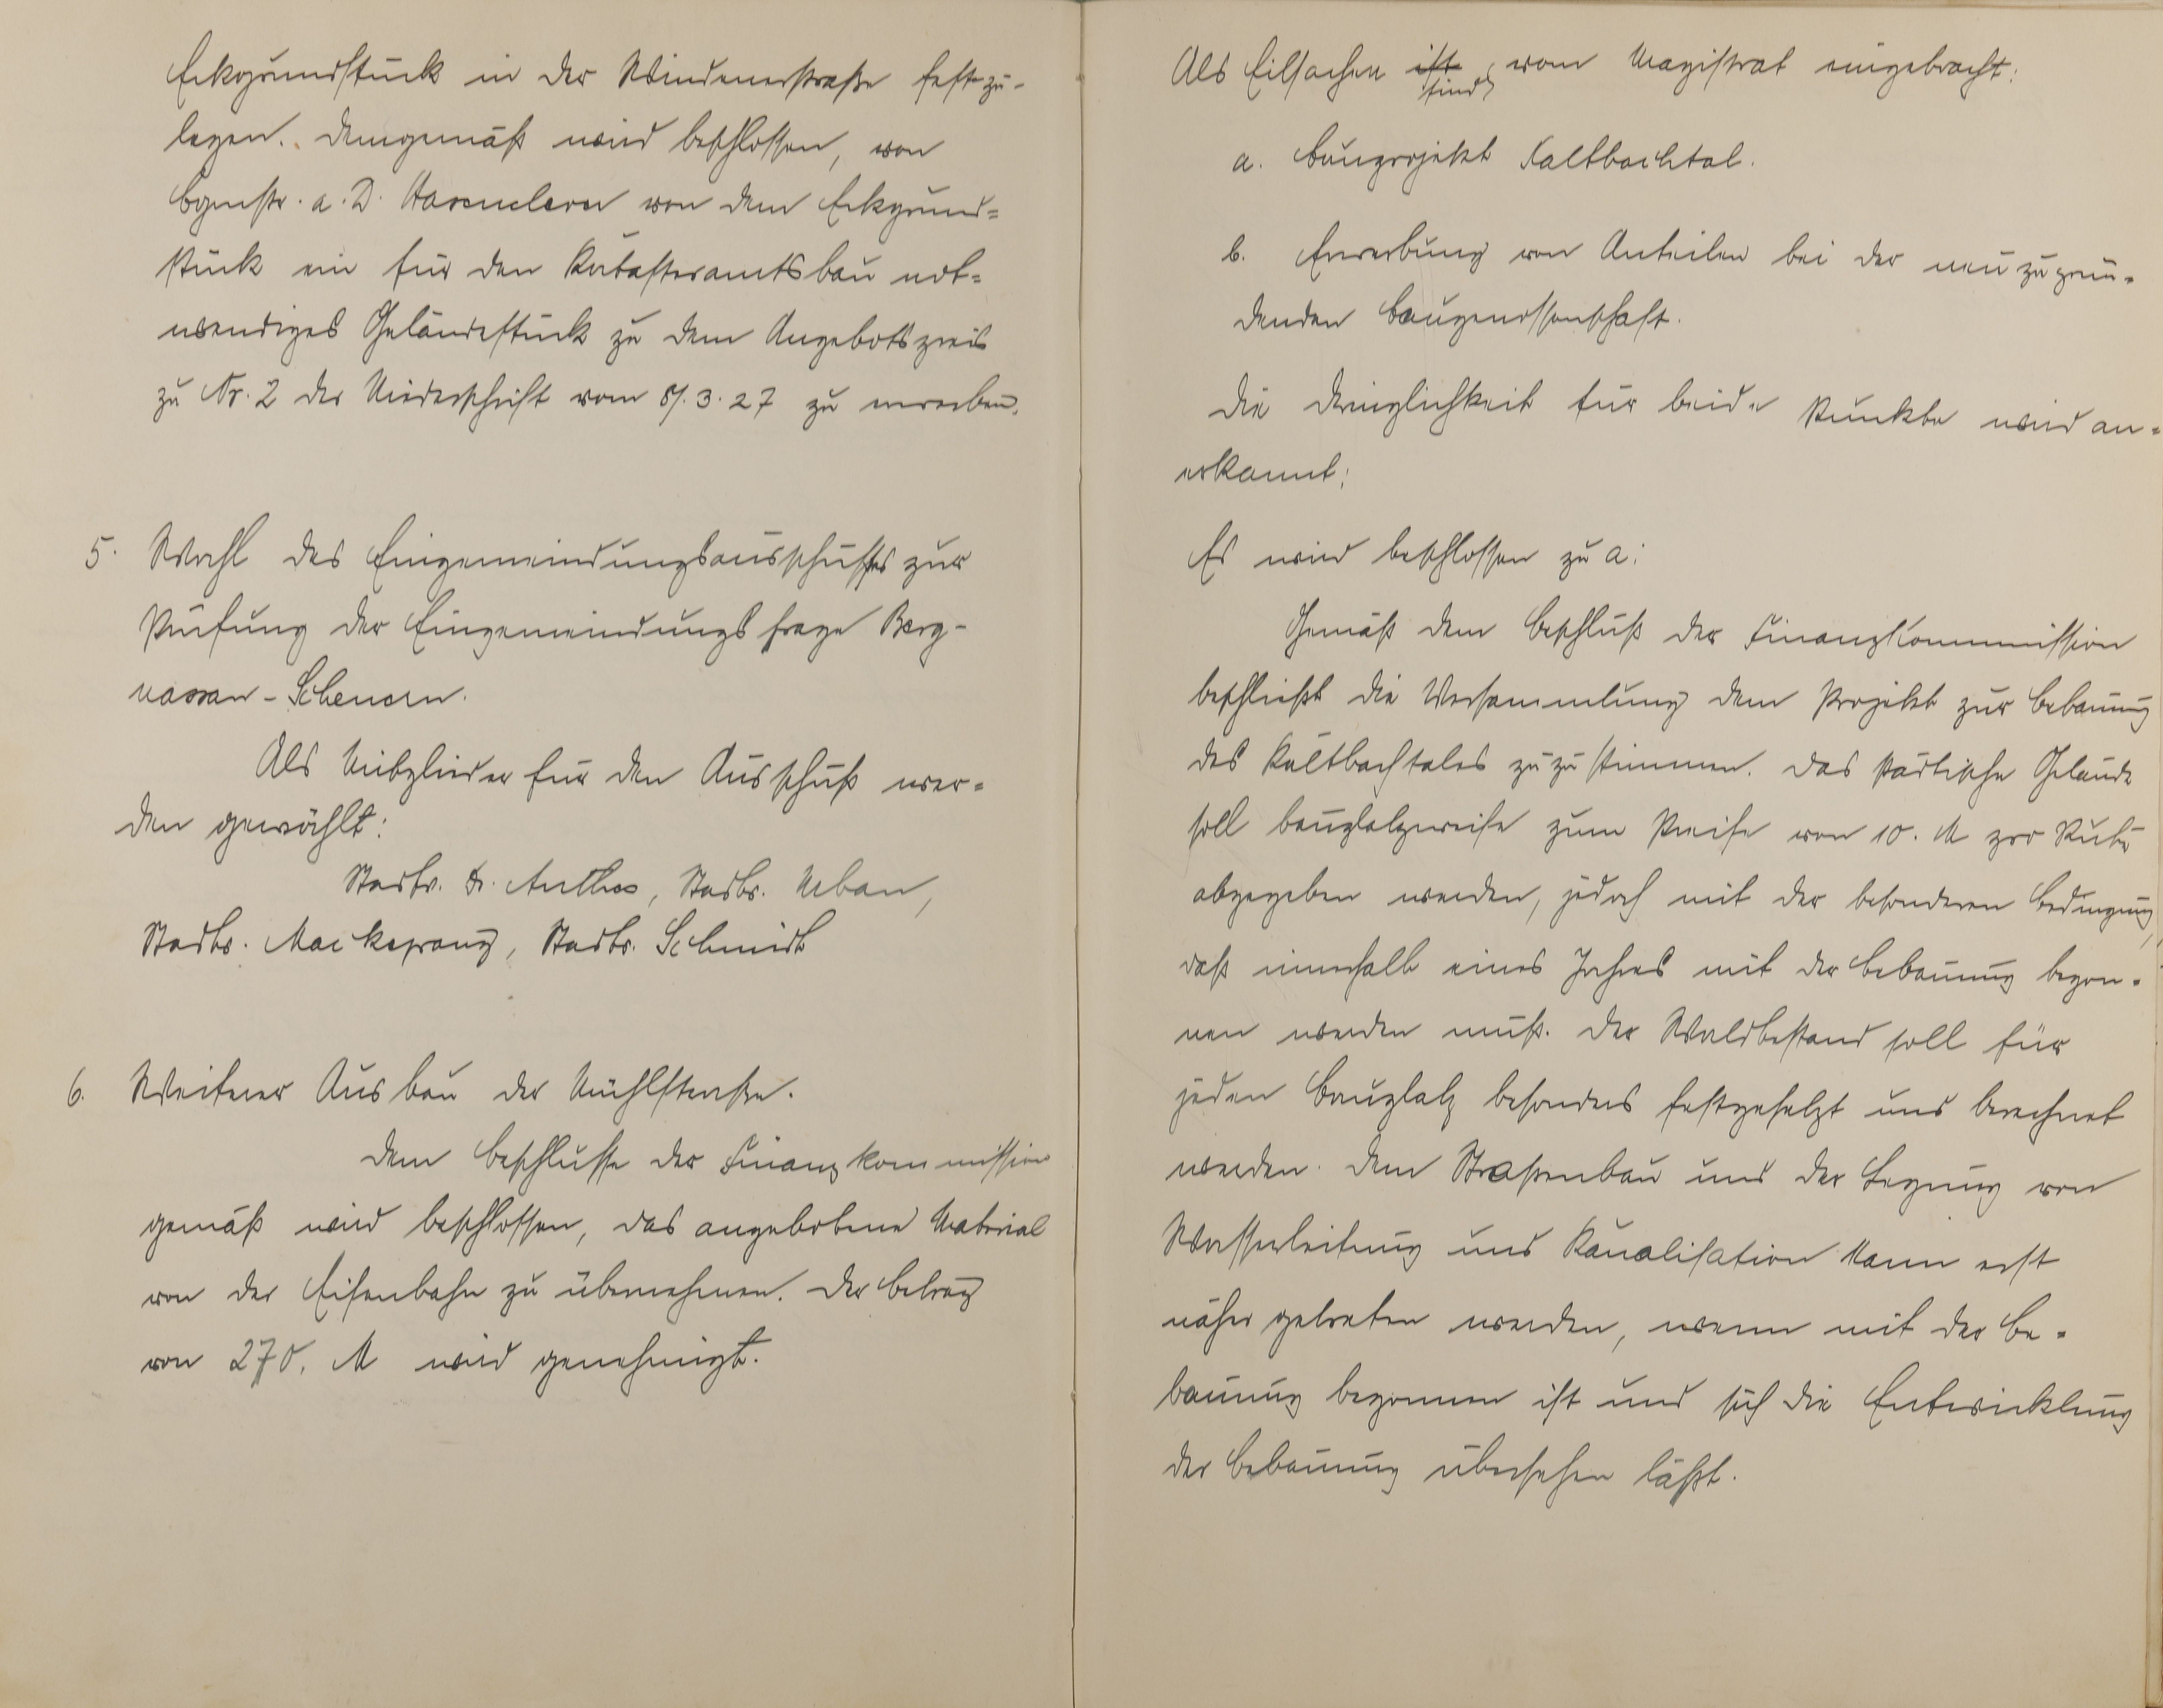 Eckgrundstück in der Windenerstraße festzu-
legen. Demgemäß wird beschlossen, von
Bgmstr. a. D. Hasenclever von dem Eckgrund=
stück ein für den Katasteramtsbau not=
wendiges Geländestück zu dem Angebotspreis
zu Nr. 2 der Niederschrift vom 8/.3.27 zu erwerben.
5. Wahl des Eingemeindungsausschusses zur
Prüfung der Eingemeindungsfrage Berg-
nassau-Scheuern.
Als Mitglieder für den Ausschuß wer=
den gewählt:
Stadtv. Dr. Anthes, Stadtv. Urban,
Stadtv. Mackeprang, Stadtv. Schmidt
6. Weiterer Ausbau der Mühlstraße.
Dem Beschlusse der Finanzkommission
gemäß wird beschlossen, das angebotene Material
von der Eisenbahn zu übernehmen. Der Betrag
von 270. M wird genehmigt.
Als Eilsachen ist sind vom Magistrat eingebracht:
a. Bauprojekt Kaltbachtal.
b. Erwerbung von Anteilen bei der neuzugrün=
denden Baugenossenschaft.
Die Dringlichkeit für beide Punkte wird an=
erkannt;
Es wird beschlossen zu a:
Gemäß dem Beschluß der Finanzkommission
beschließt die Versammlung dem Projekt zur Bebauung
des Kaltbachtales zuzustimmen. Das städtische Gelände
soll bauplatzweise zum Preise von 10. M pro Rute
abgegeben werden, jedoch mit der besonderen Bedingung,
daß innerhalb eines Jahres mit der Bebauung begon=
nen werden muß. Der Waldbestand soll für
jeden Bauplatz besonders festgesetzt und berechnet
werden. Dem Straßenbau und der Legung von
Wasserleitung und Kanalisation kann erst
näher getreten werden, wenn mit der Be=
bauung begonnen ist und sich die Entwicklung
der Bebauung übersehen läßt.